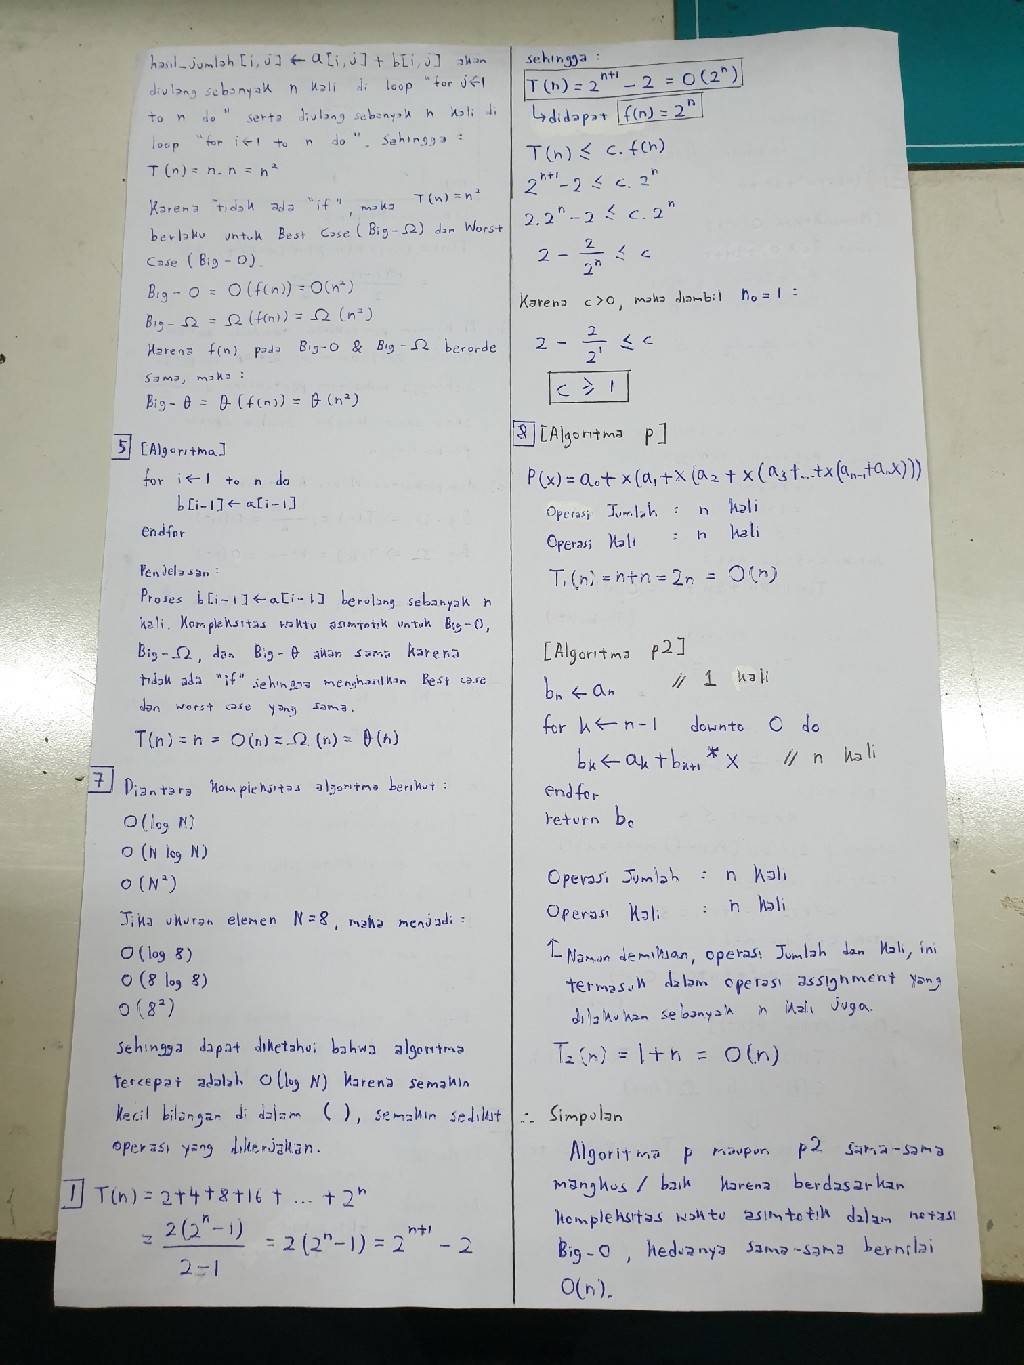 hasil_jumlah [i,j] ← a[i,j] + b[i,j] akan
diulang sebanyak n kali di loop "for j←1
to n do" serta diulang sebanyak n kali di
loop "for i←1 to n do". Sehingga :
T(n) = n.n = n²
Karena "tidak ada "if", maka T(n)=n²
berlaku untuk Best Case (Big-Ω) dan Worst
Case (Big-O)
Big-O = O(f(n)) = O(n²)
Big-Ω = Ω(f(n)) = Ω(n²)
Karena f(n) pada Big-O & Big-Ω berorde
sama, maka :
Big-θ = θ(f(n)) = θ(n²)
5 [Algoritma]
for i←1 to n do
b[i-1] ← a[i-1]
endfor
Penjelasan :
Proses b[i-1] ← a[i-1] berulang sebanyak n
kali. Kompleksitas waktu asimtotik untuk Big-O,
Big-Ω, dan Big-θ akan sama karena
tidak ada "if" sehingga menghasilkan Best case
dan worst case yang sama.
T(n) = n = O(n) = Ω(n) = θ(n)
7 Diantara kompleksitas algoritma berikut :
O(log N)
O(N log N)
O(N²)
Jika ukuran elemen N=8, maka menjadi :
O(log 8)
O(8 log 8)
O(8²)
Sehingga dapat diketahui bahwa algoritma
tercepat adalah O(log N) karena semakin
kecil bilangan di dalam ( ), semakin sedikit
operasi yang dikerjakan.
1 T(n) = 2+4+8+16 + ... + 2ⁿ
= 2(2ⁿ-1)/2-1 = 2(2ⁿ-1) = 2ⁿ⁺¹ - 2
sehingga :
T(n) = 2ⁿ⁺¹ - 2 = O(2ⁿ)
↳ didapat f(n) = 2ⁿ
T(n) ≤ c.f(n)
2ⁿ⁺¹ - 2 ≤ c.2ⁿ
2.2ⁿ - 2 ≤ c.2ⁿ
2 - 2/2ⁿ ≤ c
Karena c>0, maka diambil n₀ = 1 :
2 - 2/2¹ ≤ c
c ≥ 1
8 [Algoritma p]
P(x) = a₀ + x(a₁ + x(a₂ + x(a₃ + ... + x(aₙ₋₁ + aₙx)))
Operasi Jumlah : n kali
Operasi Kali : n kali
T₁(n) = n+n = 2n = O(n)
[Algoritma p2]
bₙ ← aₙ // 1 kali
for k ← n-1 downto 0 do
bₖ ← aₖ + bₖ₊₁ * x // n kali
endfor
return b₀
Operasi Jumlah : n kali
Operasi Kali : n kali
↑ Namun demikian, operasi Jumlah dan Kali, ini
termasuk dalam operasi assignment yang
dilakukan sebanyak n kali juga.
T₂(n) = 1+n = O(n)
∴ Simpulan
Algoritma p maupun p2 sama-sama
mangkus / baik karena berdasarkan
kompleksitas waktu asimtotik dalam notasi
Big-O, keduanya sama-sama bernilai
O(n).